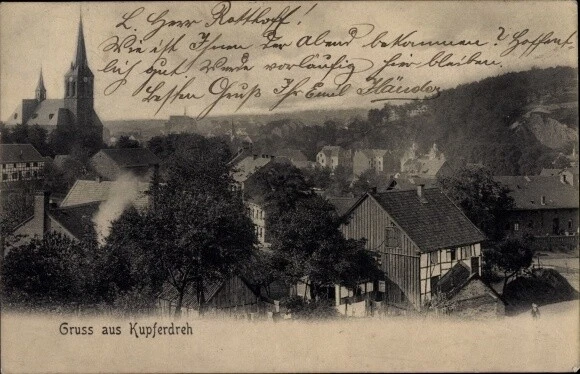 L. Herr Rotthoff!
Wie ist Ihnen der Abend bekommen? Hoffent-
lich gut. Werde vorläufig hier bleiben.
Besten Gruß Ihr Emil
Gruss aus Kupferdreh